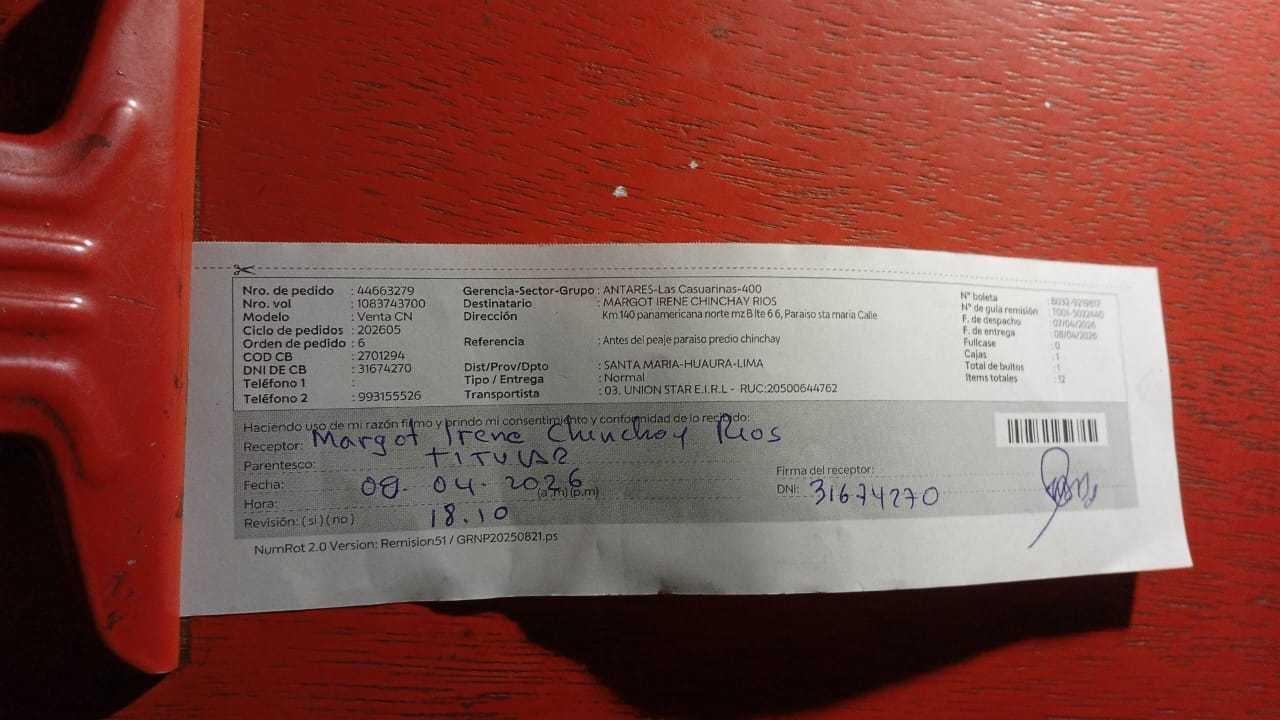 Nro. de pedido : 44663279
Nro. vol : 1083743700
Modelo : Venta CN
Ciclo de pedidos : 202605
Orden de pedido : 6
COD CB : 2701294
DNI DE CB : 31674270
Teléfono 1 :
Teléfono 2 : 993155526
Gerencia-Sector-Grupo : ANTARES-Las Casuarinas-400
Destinatario : MARGOT IRENE CHINCHAY RIOS
Dirección : Km 140 panamericana norte mz B lte 6 6, Paraiso sta maria Calle
Referencia : Antes del peaje paraiso predio chinchay
Dist/Prov/Dpto : SANTA MARIA-HUAURA-LIMA
Tipo / Entrega : Normal
Transportista : 03. UNION STAR E.I.R.L - RUC:20500644762
N° boleta
N° de guía remisión
F. de despacho : 07/04/2026
F. de entrega : 08/04/2026
Fullcase : 0
Cajas : 1
Total de bultos : 1
Items totales : 12
Haciendo uso de mi razón firmo y brindo mi consentimiento y conformidad de lo recibido:
Receptor: Margot Irene Chinchay Rios
Parentesco: TITULAR
Fecha: 08. 04. 2026
Hora: (a.m) (p.m)
18.10
Revisión: ( si ) ( no )
Firma del receptor:
DNI: 31674270
NumRot 2.0 Version: Remision51 / GRNP20250821.ps